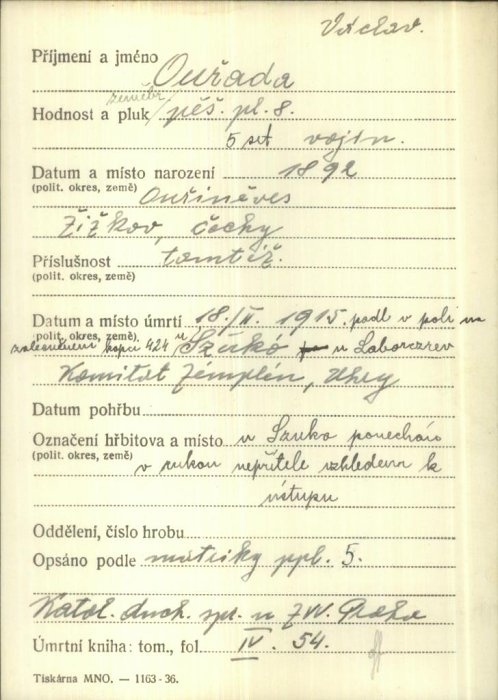 Václav.
Příjmení a jméno Ouřada
zeměbr.
Hodnost a pluk pěš. pl. 8.
5 set vojín.
Datum a místo narození 1892
(polit. okres, země) Ouřiněves
Žižkov, Čechy
Příslušnost tomtéž.
(polit. okres, země)
Datum a místo úmrtí 18./II. 1915. padl v poli na
(polit. okres, země) kopci 424 u Szukó u Laborczrev
Komitat Zemplén, Uhry
Datum pohřbu
Označení hřbitova a místo u Szuko ponecháno
(polit. okres, země) v rukou nepřítele vzhledem k
ústupu
Oddělení, číslo hrobu
Opsáno podle matriky ppl. 5.
Katol. duch. spr. u ZVV. Praha
Úmrtní kniha: tom., fol. IV. 54.
Tiskárna MNO. — 1163-36.